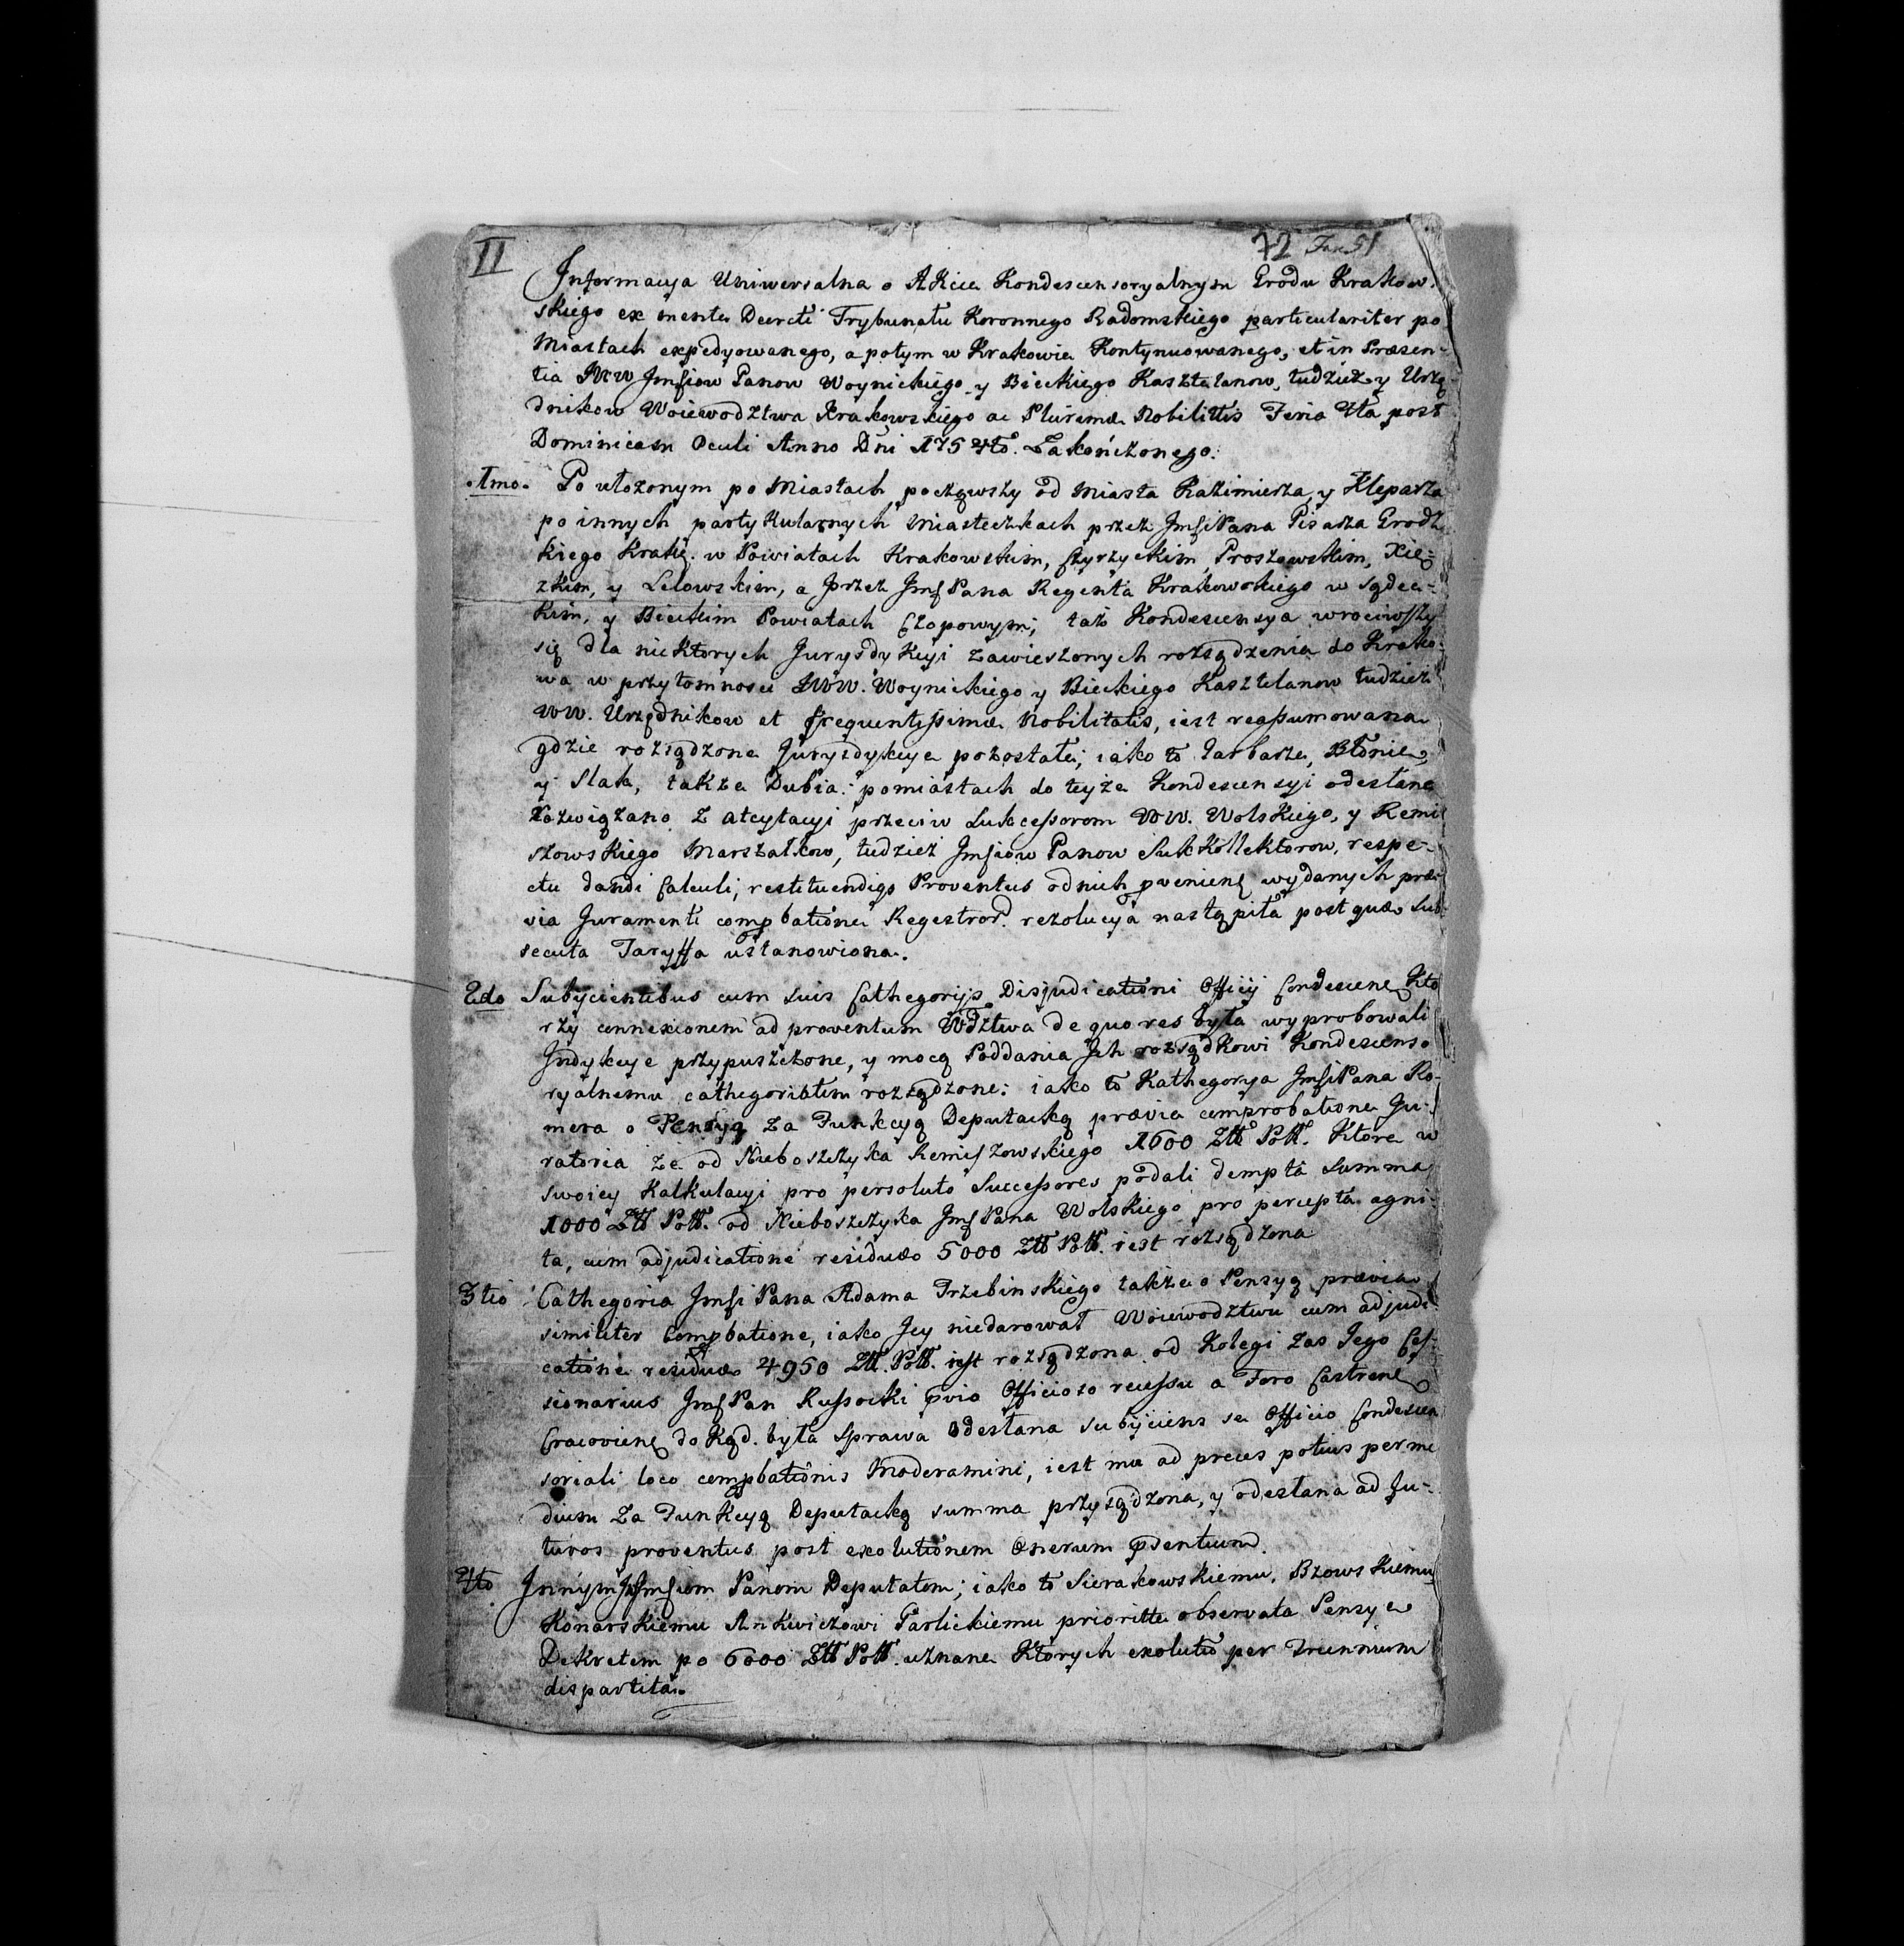 II
72 Fas. 51
Informacya Uniwersalna o Akcie Kondescensoryalnym Grodu Krakow-
skiego ex mente Decreti Trybunału Koronnego Radomskiego particulariter po
Miastach expedyowanego, a potym w Krakowie Kontynuowanego, et in Præsen-
tia JWW Jmściow Panow Woynickiego y Bieckiego Kasztelanow, tudziesz y Urzę
dnikow Woiewodztwa Krakowskiego ac Plurimæ Nobilittis Feria 4ta post
Dominicam Oculi Anno Dni 1754to. Zakończonego.
1mo. Po ułozonym po Miastach począwszy od Miasta Kazimierza, y Kleparza
po innych partykularnych Miasteczkach przez JmściPana Pisarza Grodz
kiego Krakĕ. w Powiatach Krakowskim, Szczyrzyckim, Proszowskim, Xię-
zkim, y Lelowskim, a przez Jmś Pana Regenta Krakowskiego w Sądec-
kim, y Bieckim Powiatach Czopowym; taż Kondescensya wrociwszy
się dla niektorych Jurysdykcyi zawieszonych rozsądzenia do Krako-
wa w przytomnosci JWW. Woynickiego y Bieckiego Kasztelanow tudziesz
WW. Urzędnikow et frequentissimæ Nobilitatis, iest reassumowana
gdzie rozsądzone Jurysdykcye pozostałe; iako to Garbarze, Błonie,
y Slak, takze Dubia po miastach do teyże Kondescensyi odesłane
rozwiązano z atcytacyi przeciw Sukcessorom WW. Wolskiego, y Remi
szowskiego Marszałkow, tudziesz Jmściow Panow SukKollektorow, respe-
ctu dandi Calculi, restituendiqs Proventus od nich pvenienĕ wydanych præ-
via Juramenti compbatione Regestror. rezolucya nastąpiła post quæ sub-
secuta Taryffa ustanowiona.
2do Subycientibus cum suis Cathegorijs Disjudicationi Officij Condescenĕ Kto
rzy connexionem ad proventum Wdztwa de quo res była wyprobowali
Indykcye przypuszczone, y mocą Poddania Jch rozsądkowi Kondescenso
ryalnemu cathegoriatim rozsądzone: iako to Kathegorya JmściPana Ro-
mera o Pensyą za Funkcyą Deputacką prævia comprobatione Ju-
ratoria że od Nieboszczyka Remiszowskiego 1600 Złł Poll. Które w
swoiey Kalkulacyi pro persoluto Successores podali dempta summa
1000 Złł Poll. od Nieboszczyka Jmś Pana Wolskiego pro percepta agni-
ta, cum adjudicatione residuæ 5000 Złł Poll. iest rozsądzona
3tio Cathegoria Jmści Pana Adama Trzebinskiego także o Pensyą prævia
similiter compbatione, iako Jey niedarował Woiewodztwu cum adjudi
catione residuæ 4950 Złł. Poll. iest rozsądzona od Kolegi zas Jego Ces-
sionarius Jmś Pan Russocki pvio Officioso recessu a Foro Castrenĕ
Cracovienĕ do Kąd. była sprawa odesłana subyciens se Officio Condescen
soriali loco compbationis Moderamini, iest mu ad preces potius per me
dium za Funkcyą Deputacką summa przysądzona, y odesłana ad fu-
turos proventus post exolutionem onerum pdentium.
4to Innym Jmściom Panom Deputatom; iako to Sierakowskiemu, Bzowskiemu
Konarskiemu Ankwiczowi Garlickiemu prioritte observata Pensye
Dekretem po 6000 Złł Poll. uznane Ktorych exolutio per Triennium
dispartita.